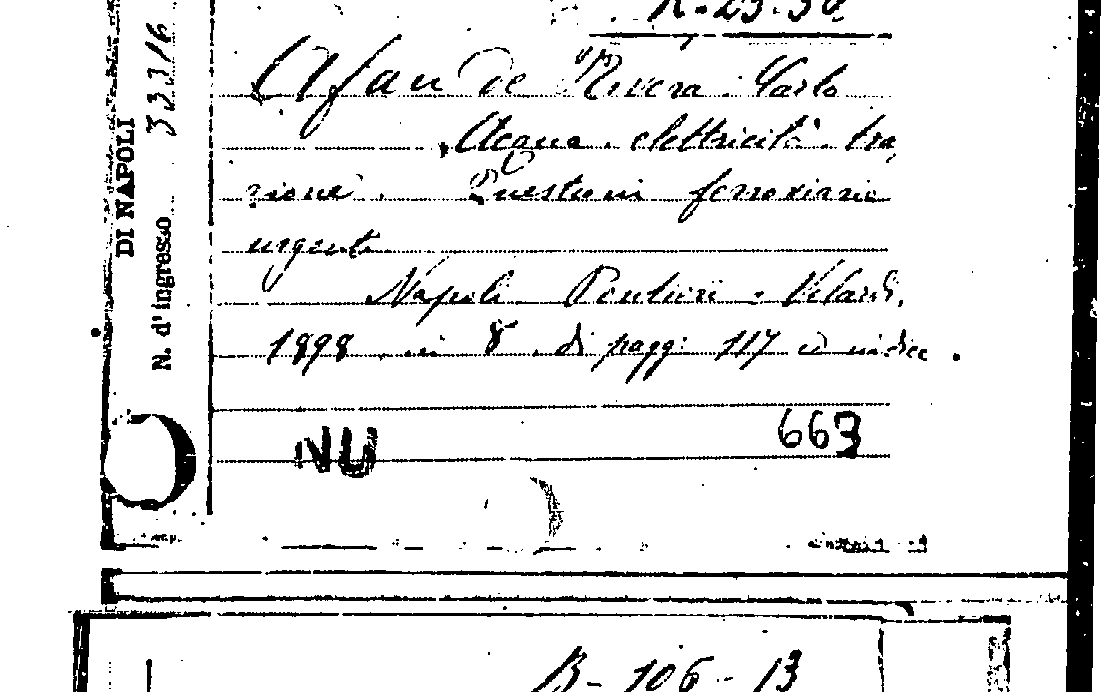 Afan de Rivera Carlo
Acqua. elettricità. tra
zione. Questioni ferroviarie
urgenti
Napoli Pontieri - Velardi,
1898 in 8° di pagg: 117 e indice.
NU 663
DI NAPOLI
N. d'ingresso 33316
B-106-13